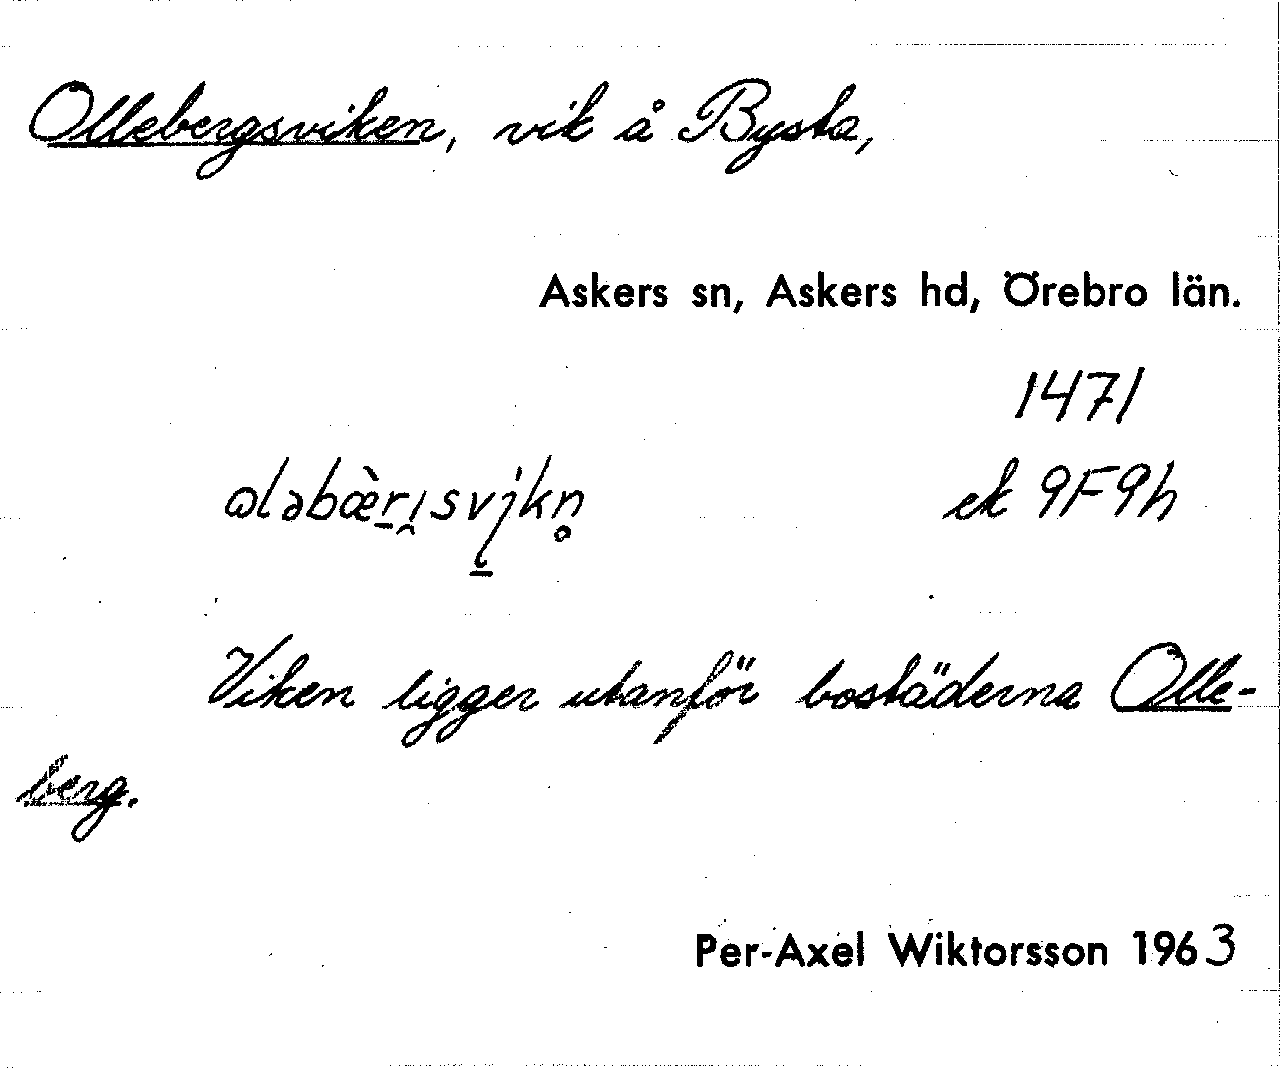 Ollebergsviken, vik å Bysta,
Askers sn, Askers hd, Örebro län.
1471
ek 9F9h
Viken ligger utanför bostäderna Olle-
berg.
Per-Axel Wiktorsson 1963